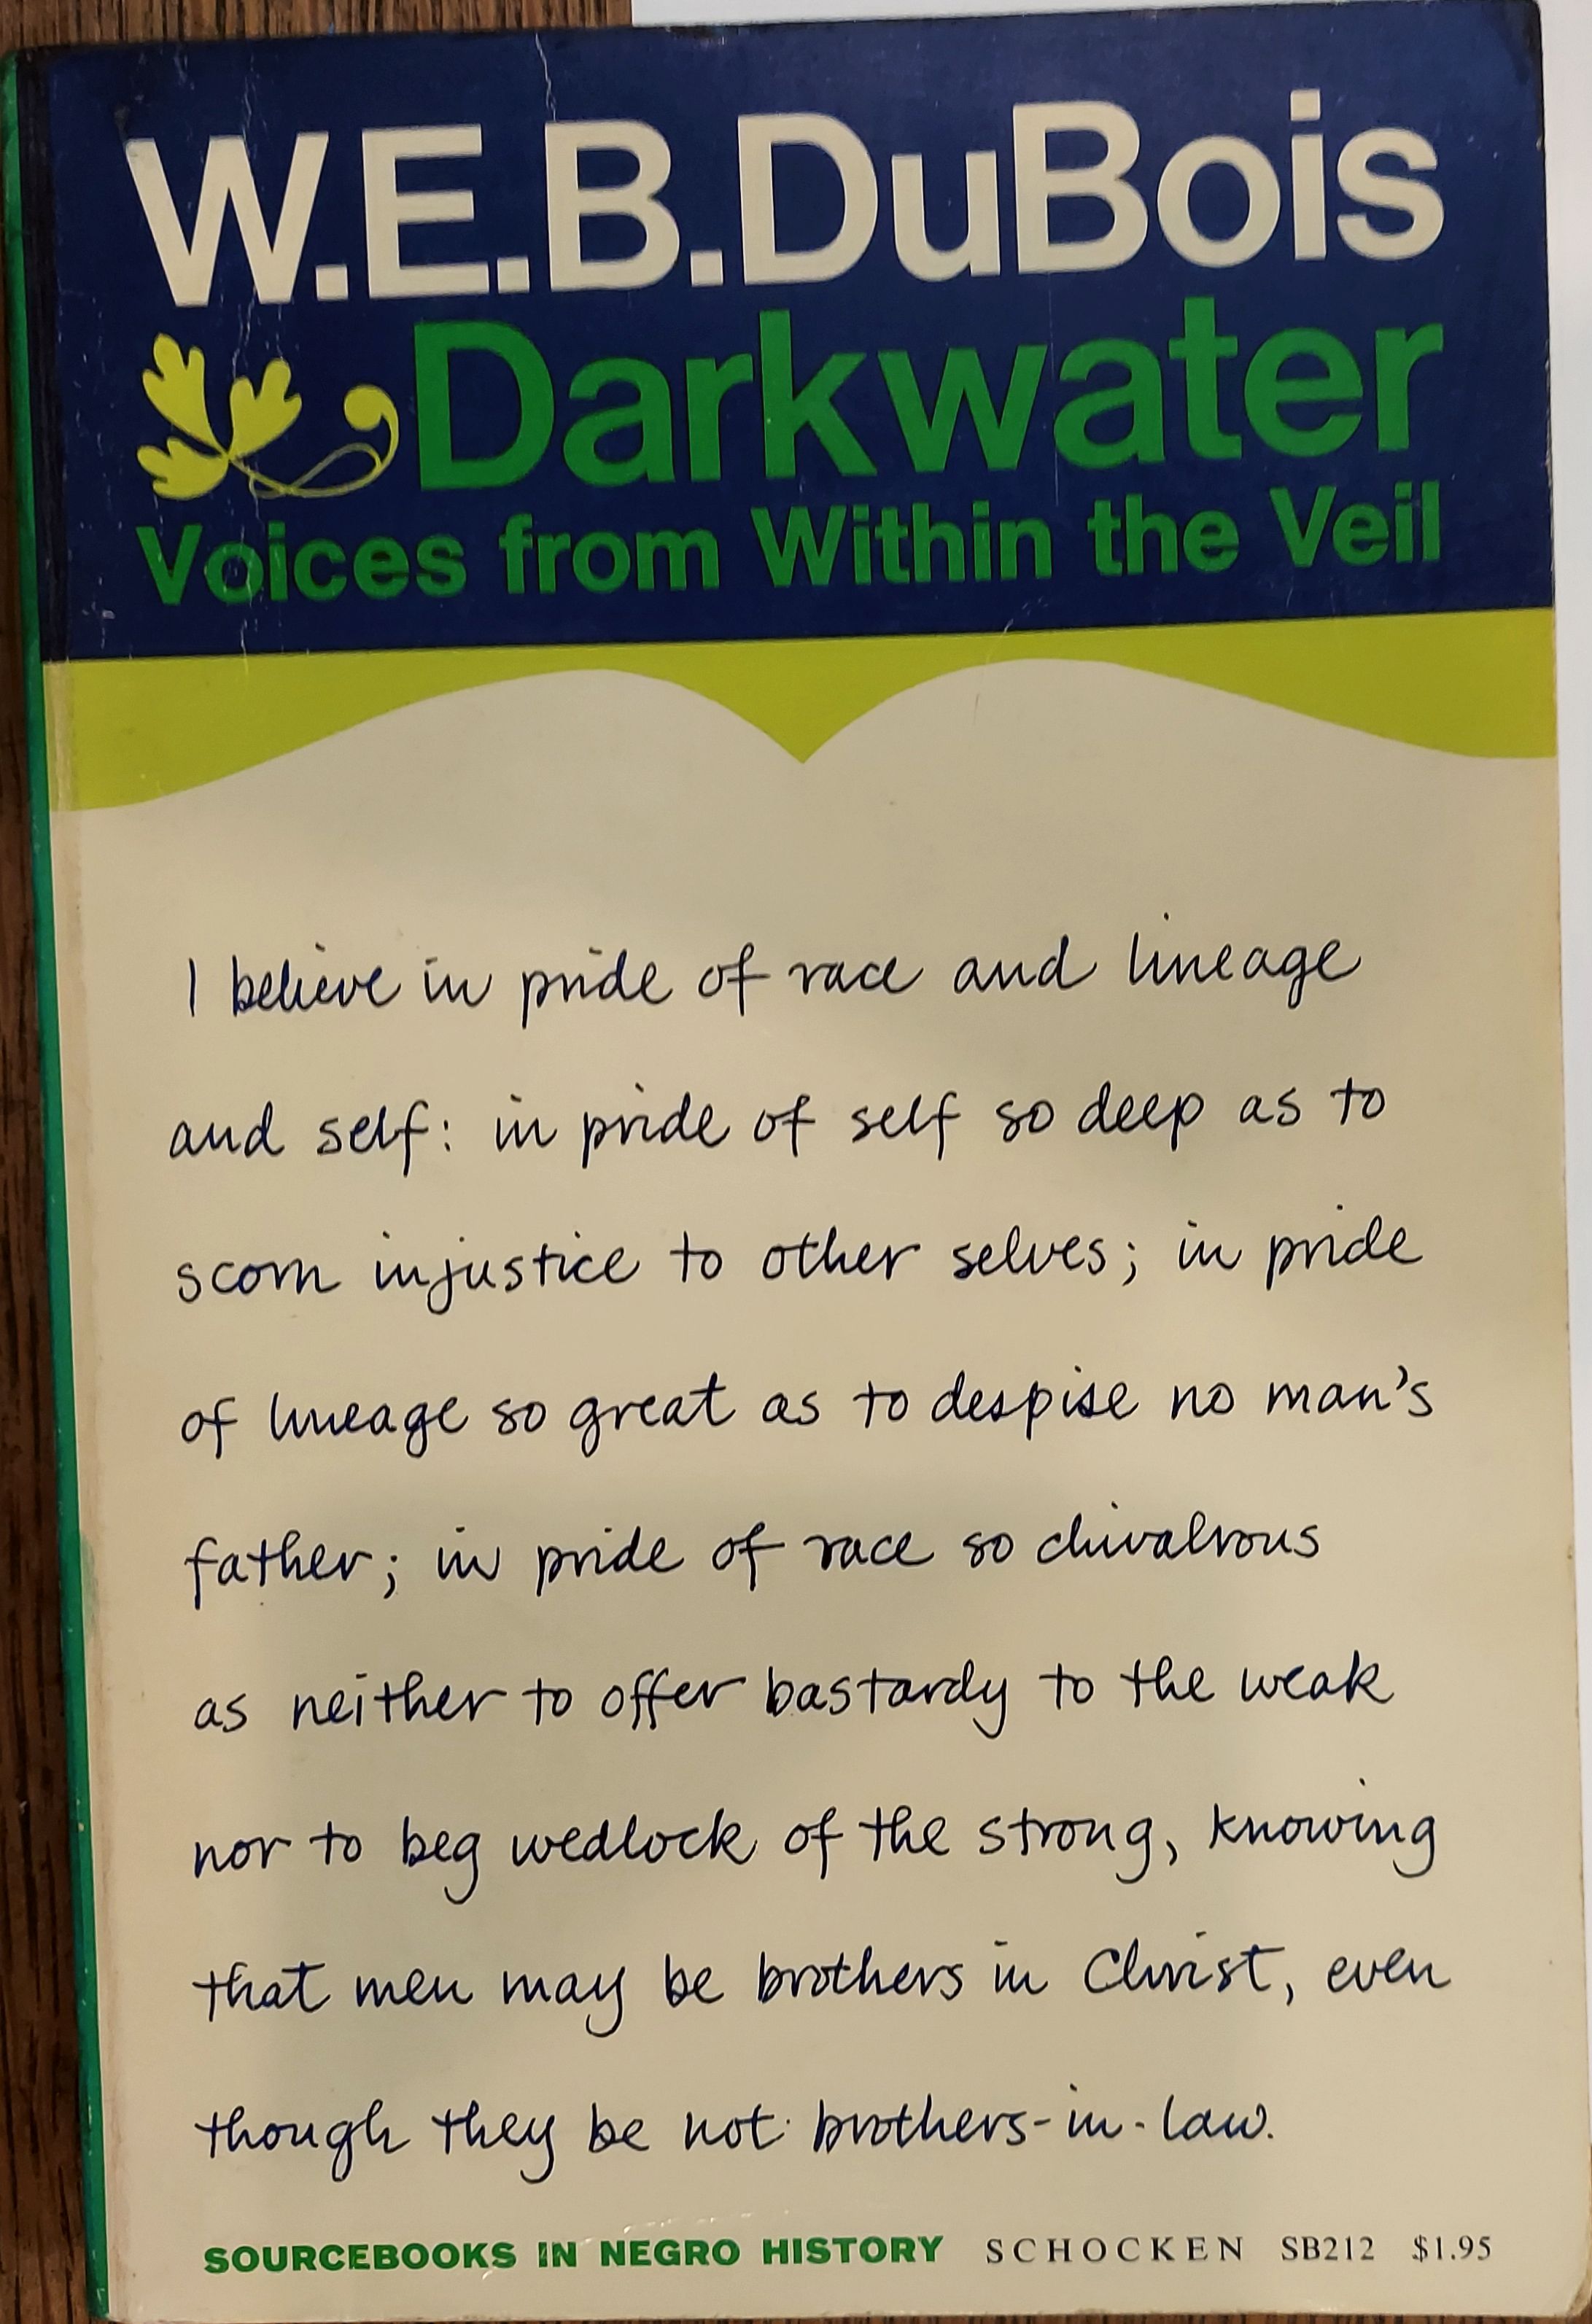 W.E.B.DuBois
Darkwater
Voices from Within the Veil
I believe in pride of race and lineage
and self: in pride of self so deep as to
scorn injustice to other selves; in pride
of lineage so great as to despise no man's
father; in pride of race so chivalrous
as neither to offer bastardy to the weak
nor to beg wedlock of the strong, knowing
that men may be brothers in Christ, even
though they be not brothers-in-law.
SOURCEBOOKS IN NEGRO HISTORY SCHOCKEN SB212 $1.95